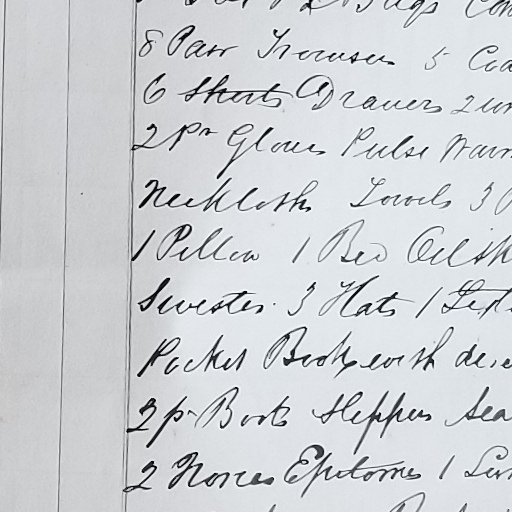 Bags
8 Pair Trousers 5
6 Shirts Drawers 2
2 Pr Gloves Pulse Warm
Neckcloths Towels 3
1 Pillow 1 Bed Oilsk
3 Hats 1
Pocket Books with
2 pr Boots Slippers Sea
2 Epitomes 1